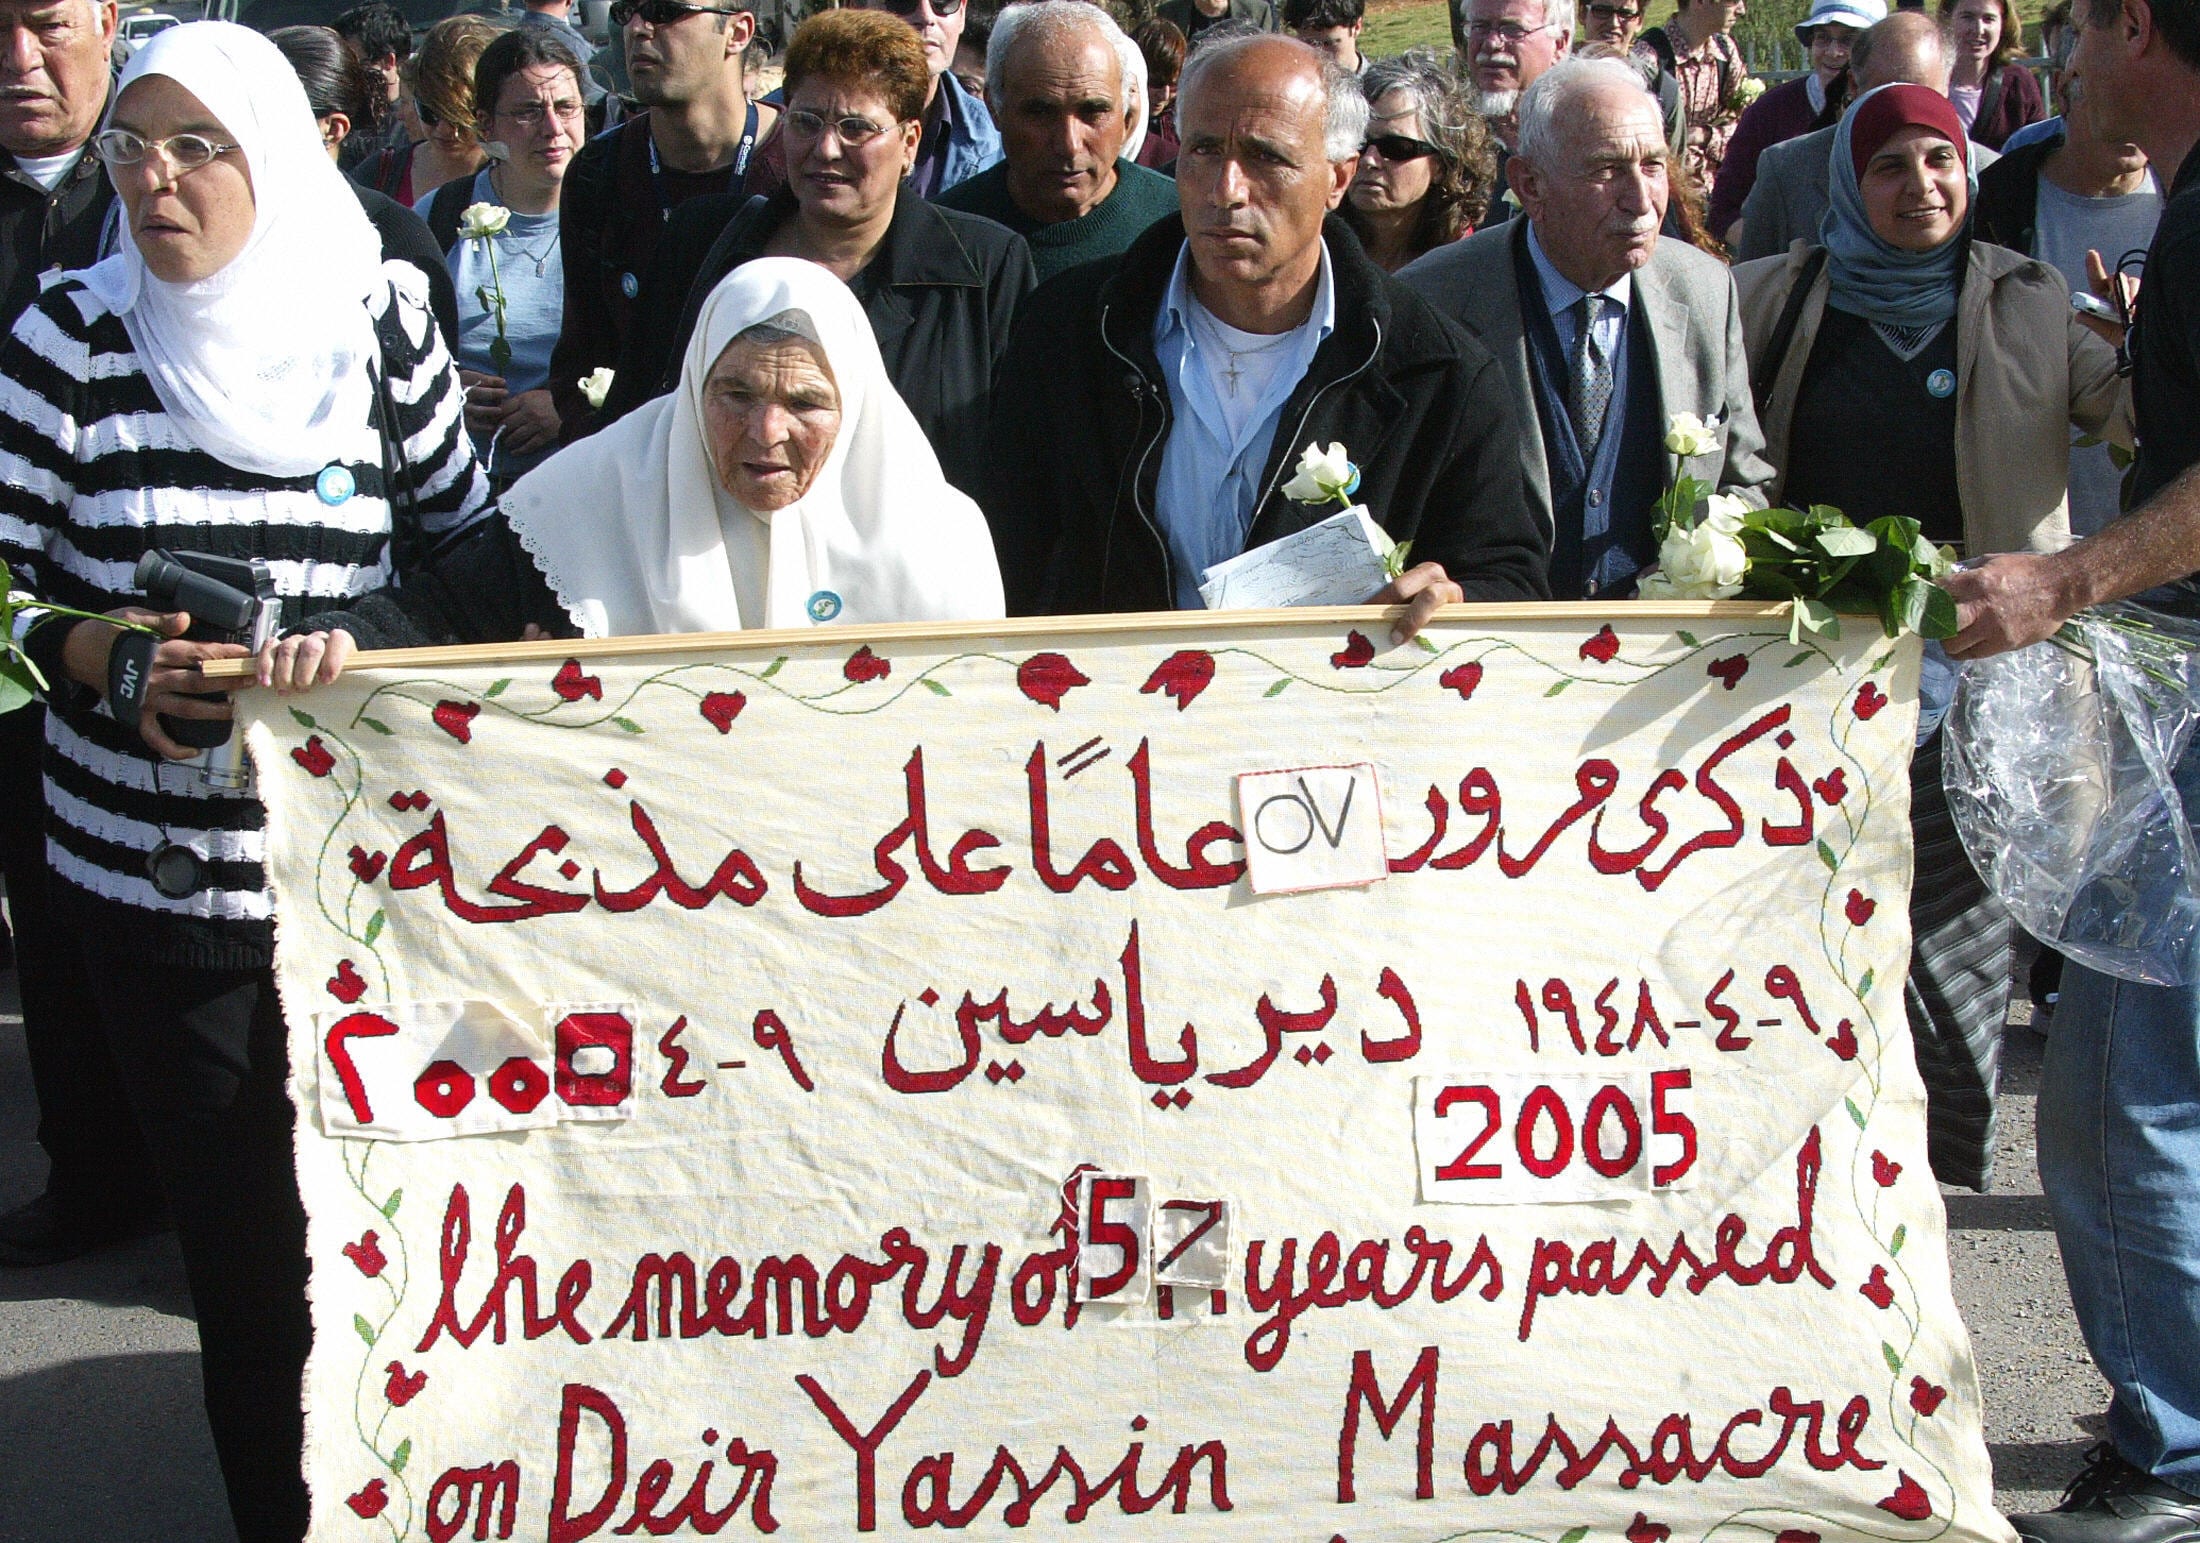 ذكرى مرور ٥٧ عامًا على مذبحة
٩-٤-١٩٤٨ دير ياسين ٩-٤ ٢٠٠٥
2005
the memory of 57 years passed
on Deir Yassin Massacre
JVC